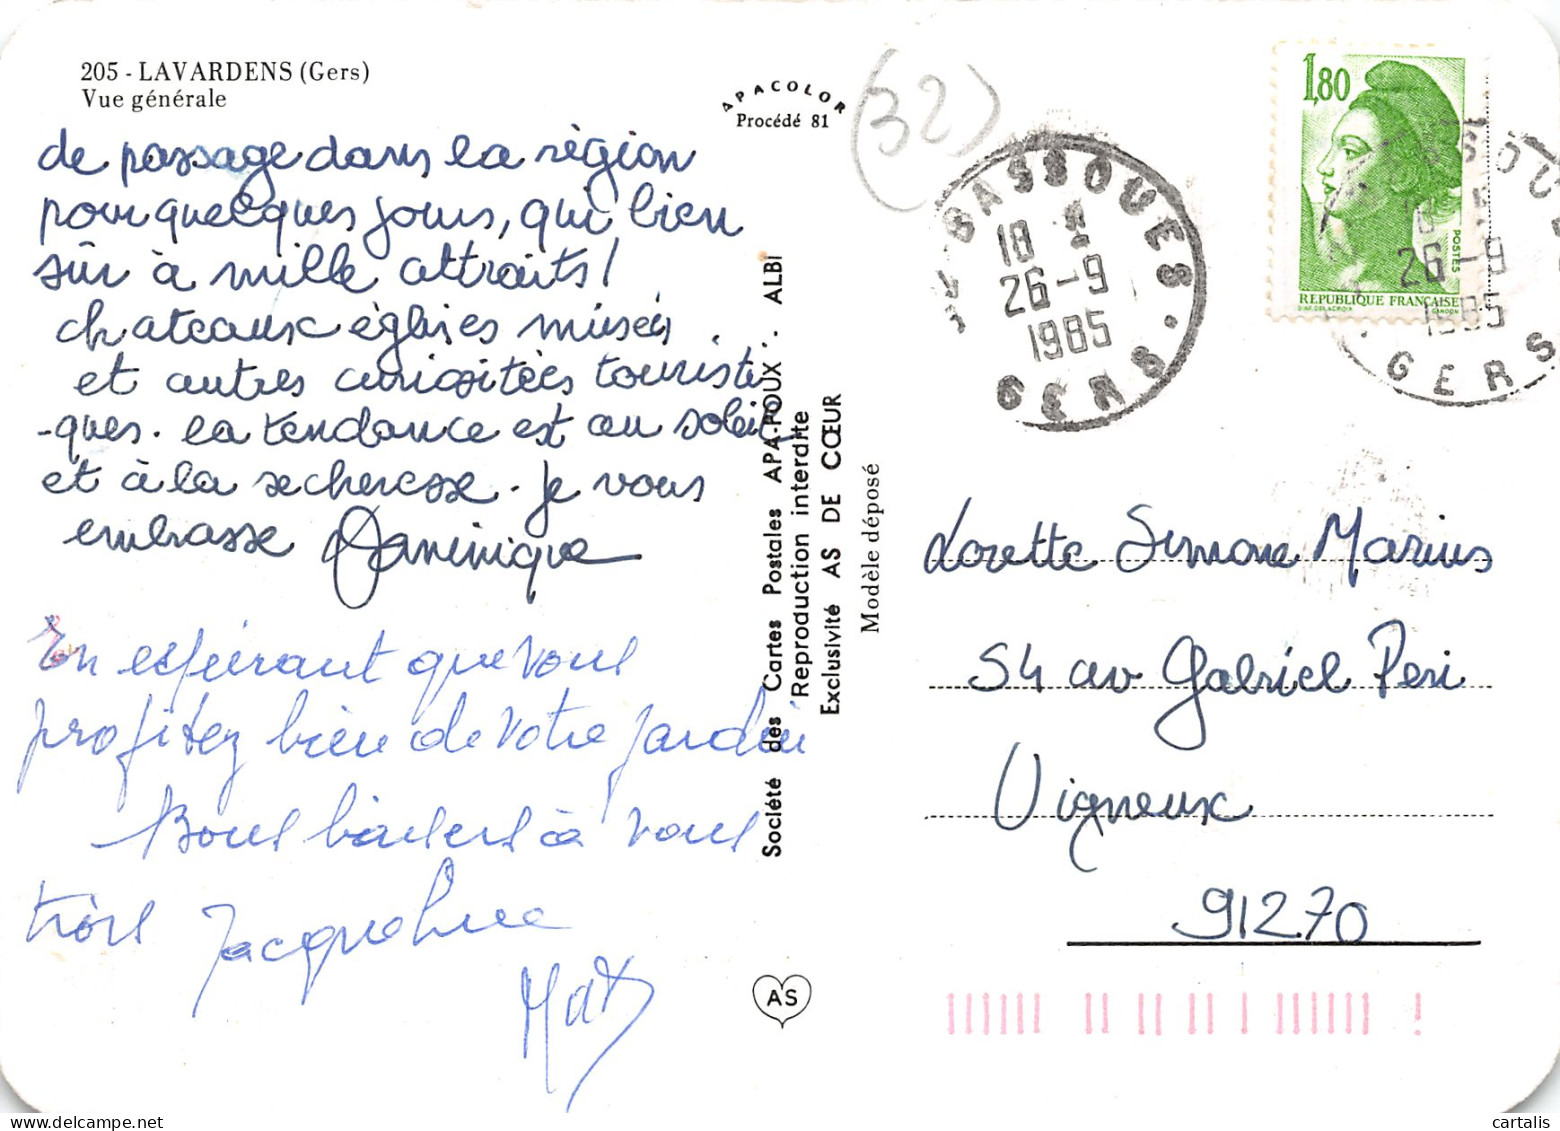 205 - LAVARDENS (Gers)
Vue générale
APACOLOR
Procédé 81
(32)
de passage dans la région
pour quelques jours, qui bien
sûr à mille attraits!
chateaux églises musées
et autres curiositées touristi
-ques. la tendance est au soleil
et à la secheresse. je vous
embrasse Dominique
En espérant que vous
profitez bien de votre jardin
Bons baisers à vous
trois Jacqueline
Société des Cartes Postales APA-POUX - ALBI
Reproduction interdite
Exclusivité AS DE CŒUR
Modèle déposé
AS
BASSOUES
18 H
26-9
1985
GERS
1,80
POSTES
REPUBLIQUE FRANÇAISE
D'AP. DELACROIX GANDON
26-9
1985
GERS
Lorette Simone Marius
54 av Gabriel Peri
Vigneux
91270
cartalis
www.delcampe.net